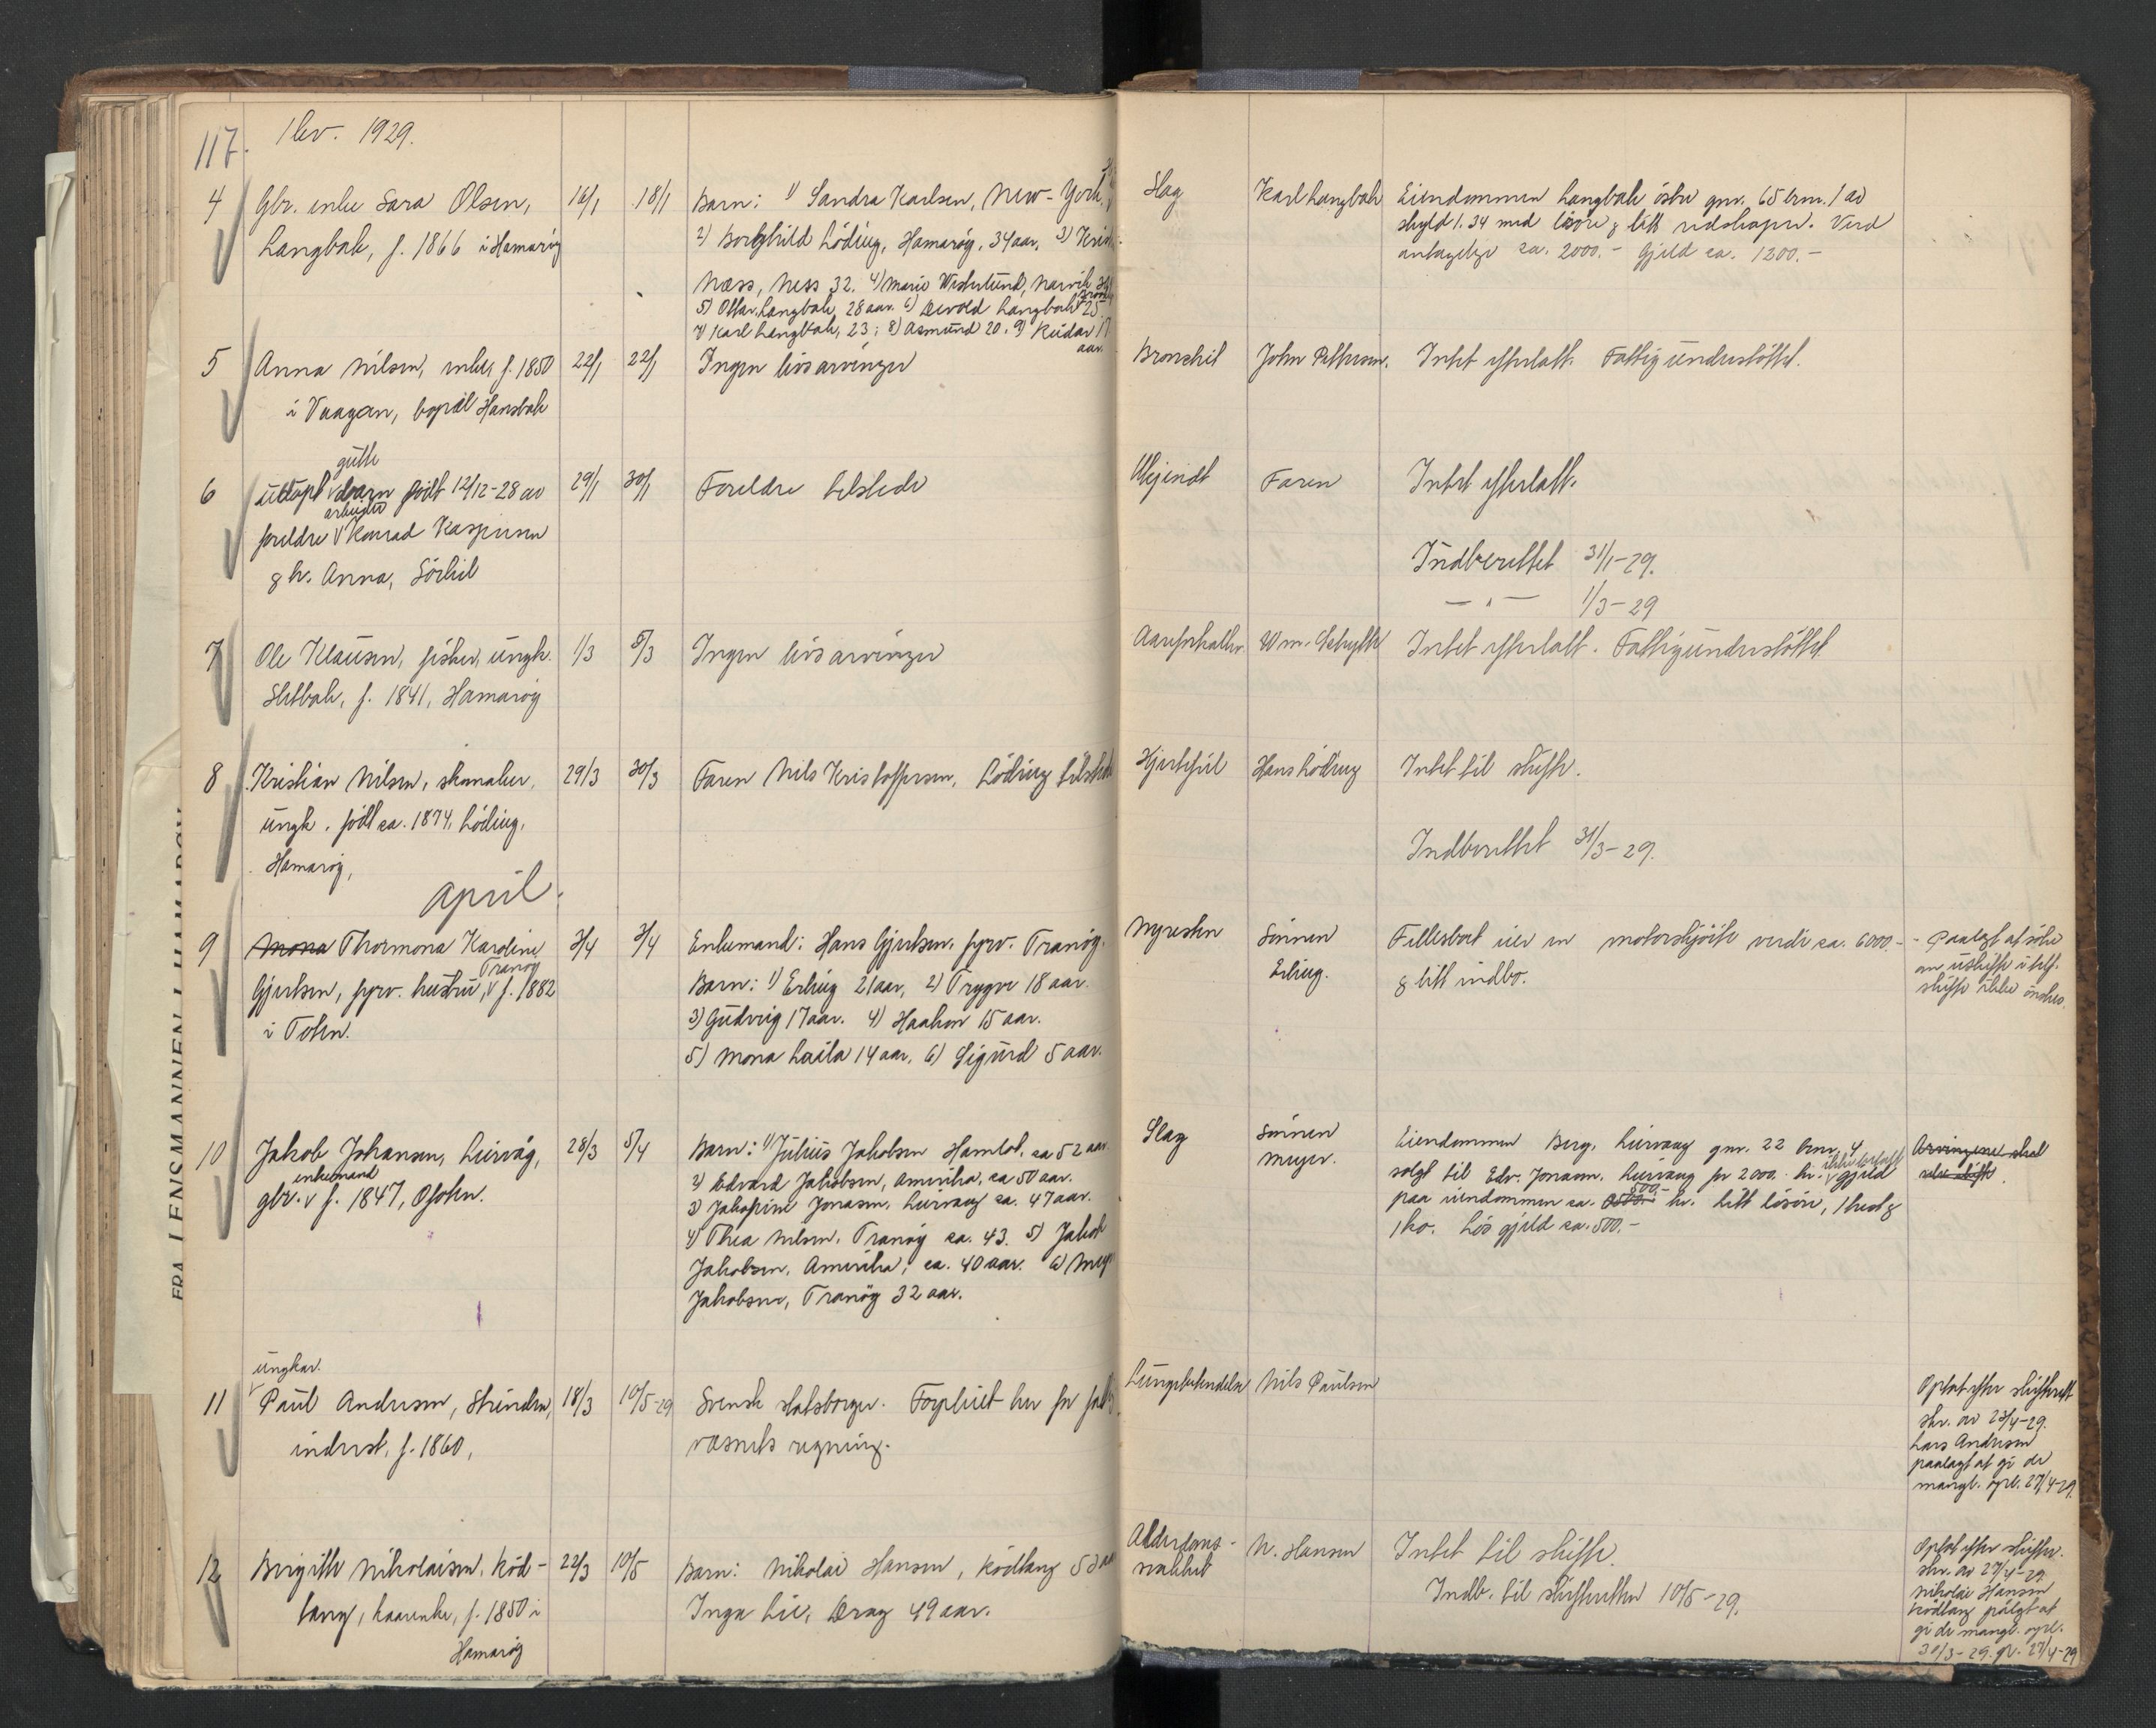 117. 1 kv. 1929.
4 Gbr. enke Sara Olsen, 16/1 18/1 Barn: 1) Sandra Karlsen, New-York,
Langbak, f. 1866 i Hamarøy 2) Borghild Løding, Hamarøy, 34 aar, 3)
Næss, Ness 32. 4) Marie Westerlund, Narvik
5) Ottar Langbak, 28 aar. 6) Edvold Langbak 25
7) Karl Langbak, 23; 8) Asmund 20, 9) Reidar 17
aar.
Slag Karl Langbak Eiendommen Langbak østre gnr. 65 brn. 1 av
skyld 1.34 med løsøre & litt redskaper. Verd
antagelge ca. 2000.- Gjeld ca. 1200.-
5 Anna Nilsen, enke, f. 1850 22/1 22/1 Ingen livsarvinger
i Vaagan, bopæl Hansbak
Bronchit John Pettersen. Intet efterlatt. Fattigunderstøttet.
gutte
6 udøpt v barn født 12/12-28 av 29/1 30/1 Foreldre tilstede
arbeider
foreldre v Konrad Kaspersen
& h. Anna, Sørkil
Ukjendt Faren Intet efterlatt.
Indberettet 31/1-29.
— " — 1/3-29
7 Ole Klausen, fisker, ungk. 1/3 5/3 Ingen livsarvinger
Sletbak, f. 1841, Hamarøy
Aareforkalkn. Wm. Schytte Intet efterlatt. Fattigunderstøttet
8 Kristian Nilsen, skomaker, 29/3 30/3 Faren Nils Kristoffersen, Løding tilstede
ungk. født ca. 1874, Løding,
Hamarøy,
Hjertefeil Hans Løding Intet til skifte.
Indberettet 31/3-29.
April.
9 Mona Thormona Karoline 3/4 3/4 Enkemand: Hans Gjertsen, fyrv. Tranøy.
Tranøy
Gjertsen, fyrv. hustru, v f. 1882 Barn: 1) Erling 21 aar, 2) Trygve 18 aar.
i Toten. 3) Gudveig 17 aar. 4) Haakon 15 aar.
5) Mona Laila 14 aar, 6) Sigurd 5 aar.
Nyresten Sønnen Fellesboet eier en motorskjøite verdi ca. 6000.- - Paalagt at søke
Erling. & litt indbo. om uskifte i tilf.
skifte ikke ønskes.
10 Jakob Johansen, Leirvåg, 28/3 5/4 Barn: 1) Julius Jakobsen Hambot. ca 52 aar.
enkemand
gbr. v f. 1847, Ofoten. 2) Edvard Jakobsen, Amerika, ca 50 aar.
3) Jakobine Jonasen, Leirvaag ca. 47 aar.
4) Thea Nilsen, Tranøy ca. 43. 5) Jakob
Jakobsen, Amerika, ca. 40 aar. 6) Meyer
Jakobsen, Tranøy 32 aar.
Slag Sønnen Eiendommen Berg, Leirvaag gnr. 22 brn. 4 Arvingene skal
Meyer. solgt til Edv. Jonasen, Leirvaag for 2000 kr. v gjeld
500.-
paa eiendommen ca. kr. litt løsøre, 1 hest &
1 ko. Løs gjeld ca. 500.-
ungkar.
11 v Paul Andersen, Strinden, 18/3 10/5-29 Svensk statsborger. Forpleiet her for
inderst, f. 1860, væsnets regning.
Lungebetendelse Nils Paulsen Optat efter skifterett
skr. av 23/4-29.
Lars Andersen
paalagt at gi de
mangl. opl. 27/4-29.
12 Birgitte Nikolaisen. Rød- 22/3 10/5 Barn: Nikolai Hansen, Rødtang 53 aar
tang, kaarenke, f. 1850 i Inga Lie, Drag 49 aar.
Hamarøy
Alderdoms- N. Hansen Intet til skifte. Optat efter skifter.
svakhet Indb. til skifteretten 10/5-29. skr. av 27/4-29
Nikolai Hansen
Rødtang pålagt at
gi de mangl. opl.
30/3-29. gt. 27/4-29